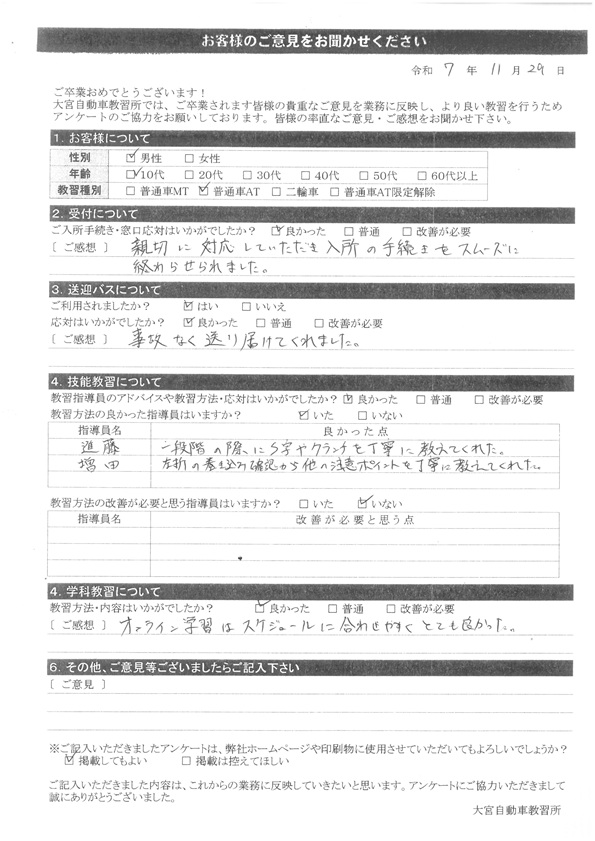 お客様のご意見をお聞かせください
令和 7 年 11 月 29 日
ご卒業おめでとうございます！
大宮自動車教習所では、ご卒業されます皆様の貴重なご意見を業務に反映し、より良い教習を行うため
アンケートのご協力をお願いしております。皆様の率直なご意見・ご感想をお聞かせ下さい。
1. お客様について
性別 ☑男性 □女性
年齢 ☑10代 □20代 □30代 □40代 □50代 □60代以上
教習種別 □普通車MT ☑普通車AT □二輪車 □普通車AT限定解除
2. 受付について
ご入所手続き・窓口応対はいかがでしたか？ ☑良かった □普通 □改善が必要
［ご感想］ 親切に対応していただき入所の手続きをスムーズに
終わらせられました。
3. 送迎バスについて
ご利用されましたか？ ☑はい □いいえ
応対はいかがでしたか？ ☑良かった □普通 □改善が必要
［ご感想］ 事故なく送り届けてくれました。
4. 技能教習について
教習指導員のアドバイスや教習方法・応対はいかがでしたか？ ☑良かった □普通 □改善が必要
教習方法の良かった指導員はいますか？ ☑いた □いない
指導員名 良かった点
進藤 一段階の際にS字やクランクを丁寧に教えてくれた。
増田 左折の巻き込み確認から他の注意ポイントを丁寧に教えてくれた。
教習方法の改善が必要と思う指導員はいますか？ □いた ☑いない
指導員名 改善が必要と思う点
4. 学科教習について
教習方法・内容はいかがでしたか？ ☑良かった □普通 □改善が必要
［ご感想］ オンライン学習はスケジュールに合わせやすくとても良かった。
6. その他、ご意見等ございましたらご記入下さい
［ご意見］
※ご記入いただきましたアンケートは、弊社ホームページや印刷物に使用させていただいてもよろしいでしょうか？
☑掲載してもよい □掲載は控えてほしい
ご記入いただきました内容は、これからの業務に反映していきたいと思います。アンケートにご協力いただきまして
誠にありがとうございました。
大宮自動車教習所